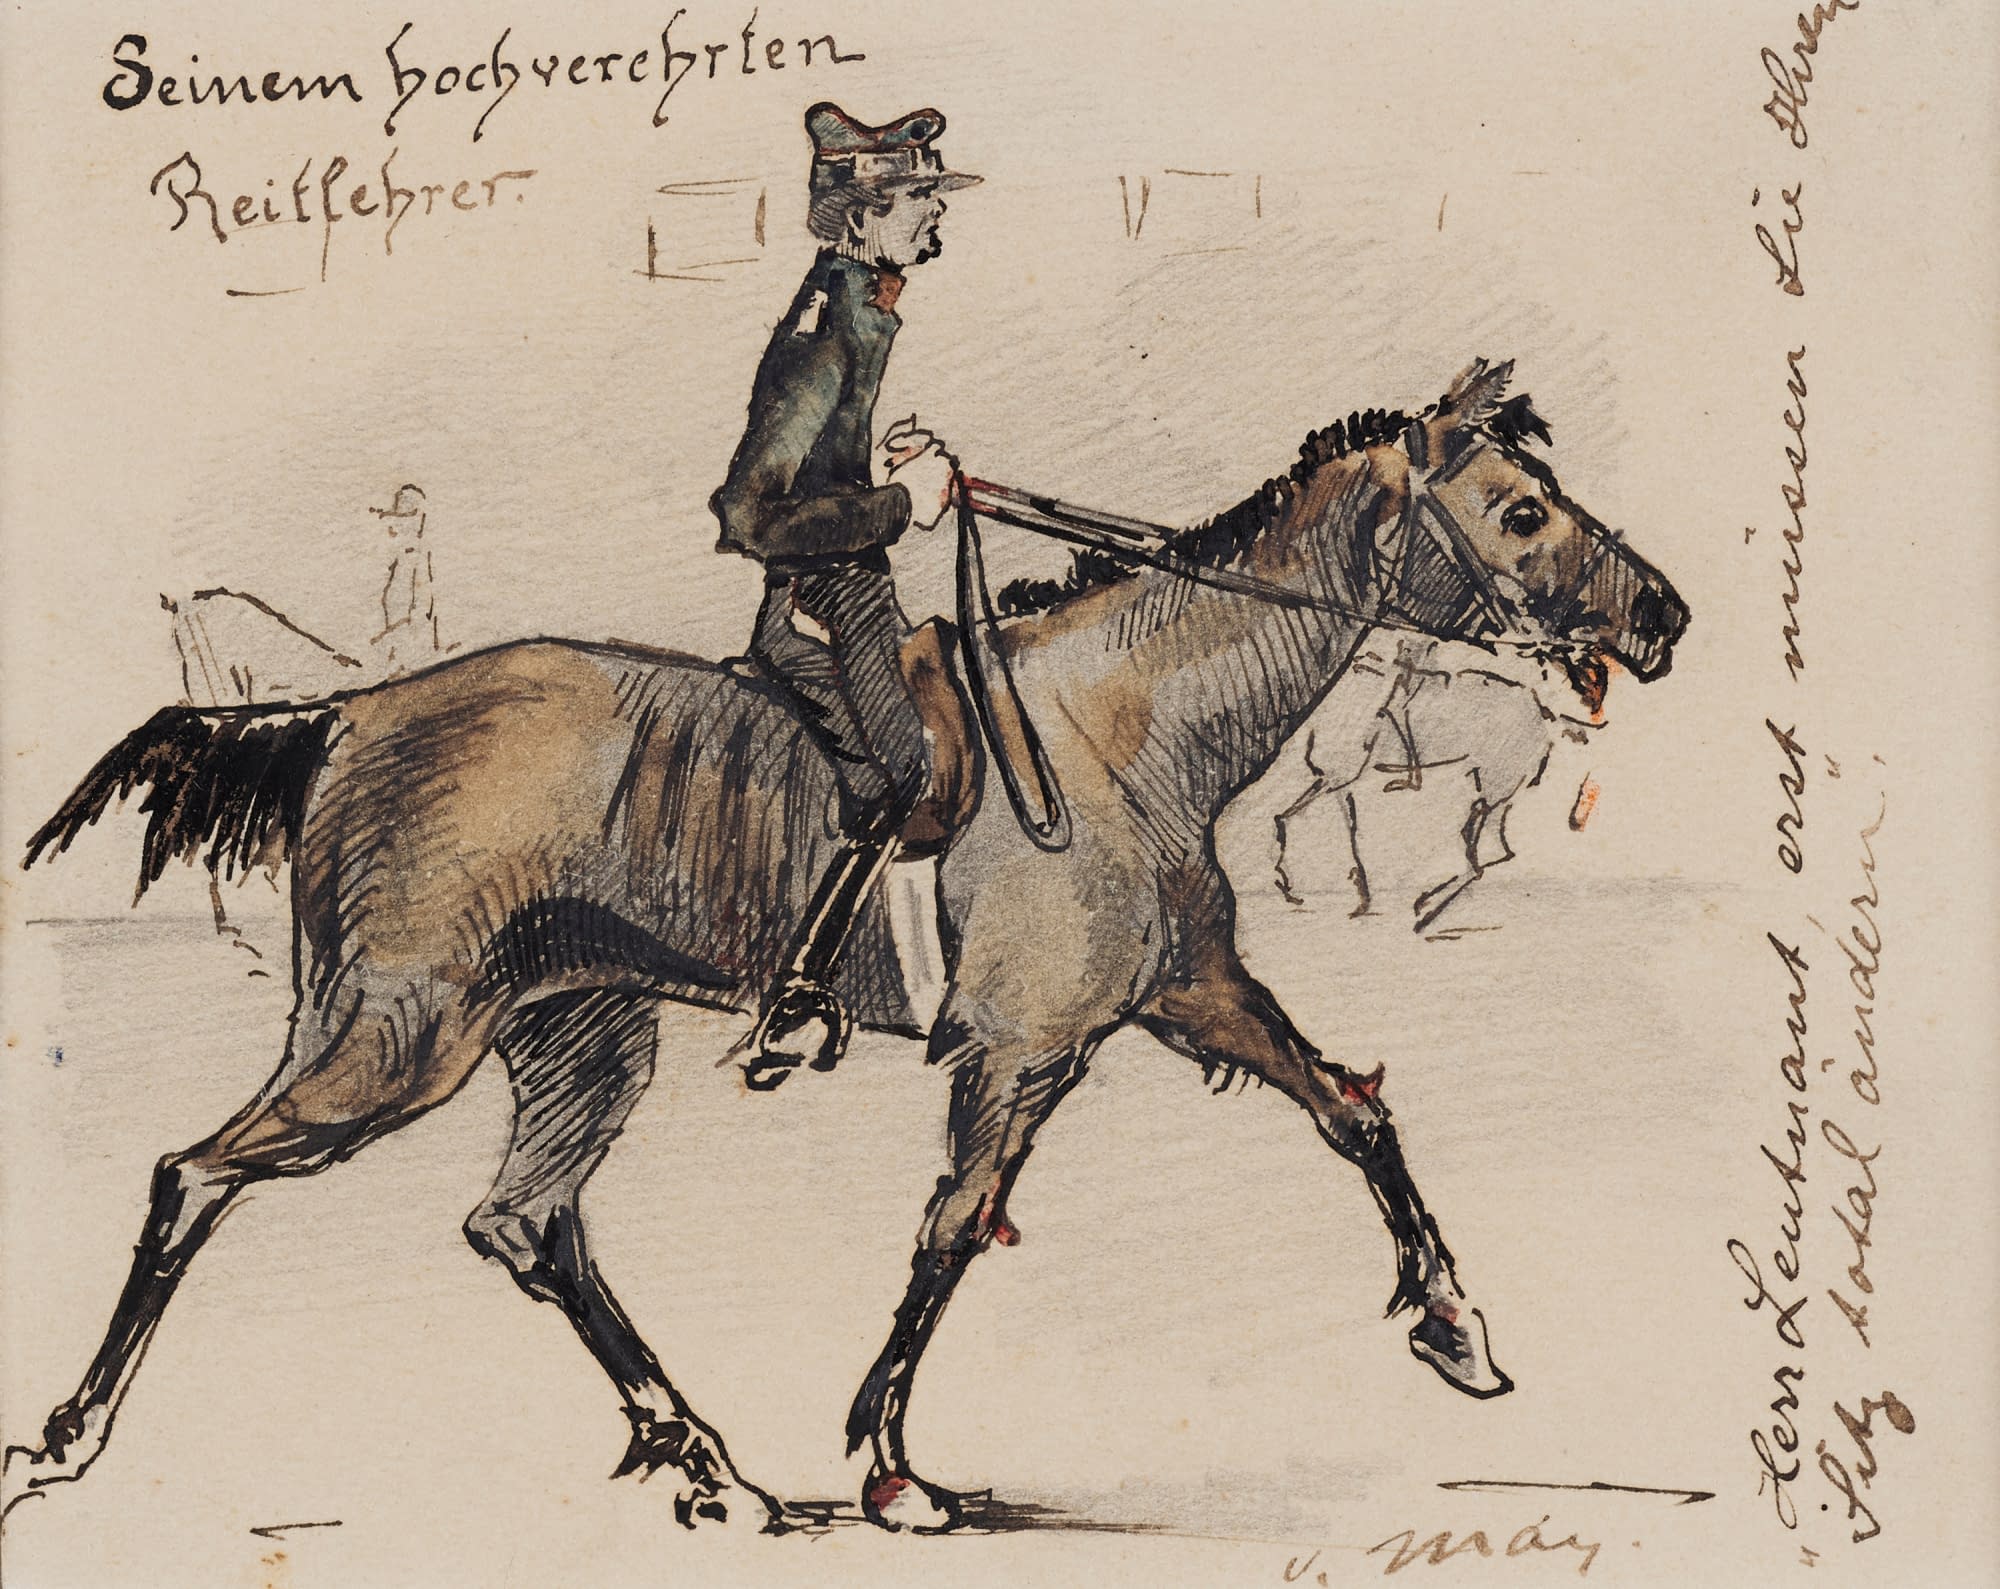 Seinem hochverehrten
Reitlehrer.
„Herr Leutnant, erst müssen Sie Ihren
Sitz total ändern“.
v. May.